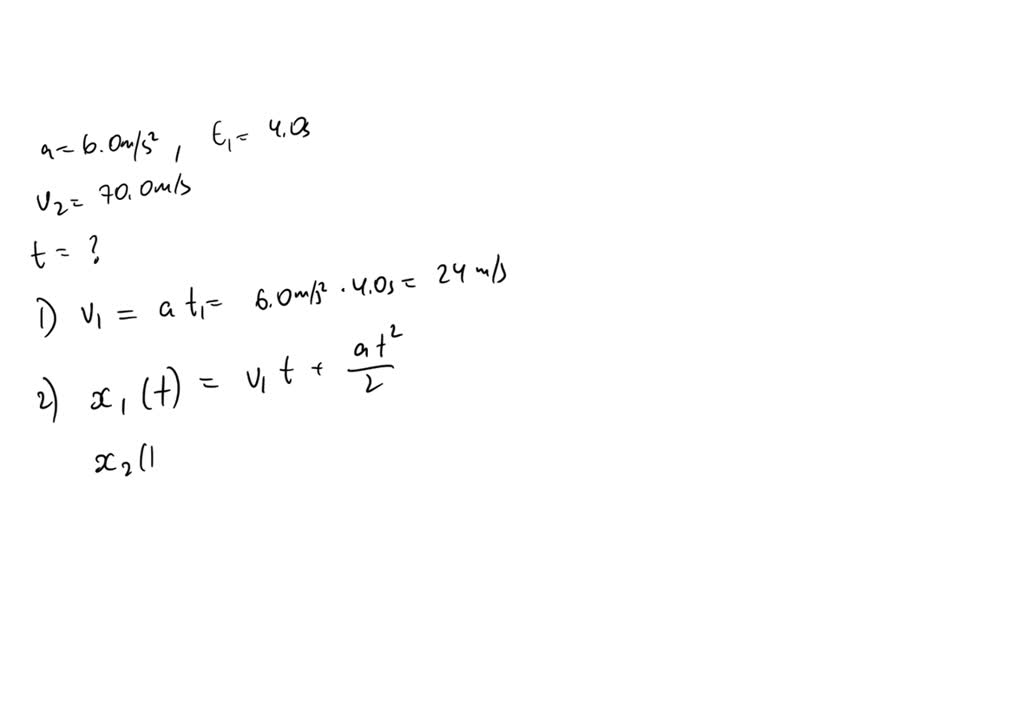 a = 6.0m/s², t₁ = 4.0s
v₂ = 70.0m/s
t = ?
1) v₁ = a t₁ = 6.0m/s² · 4.0s = 24 m/s
2) x₁(t) = v₁ t + at²/2
x₂(